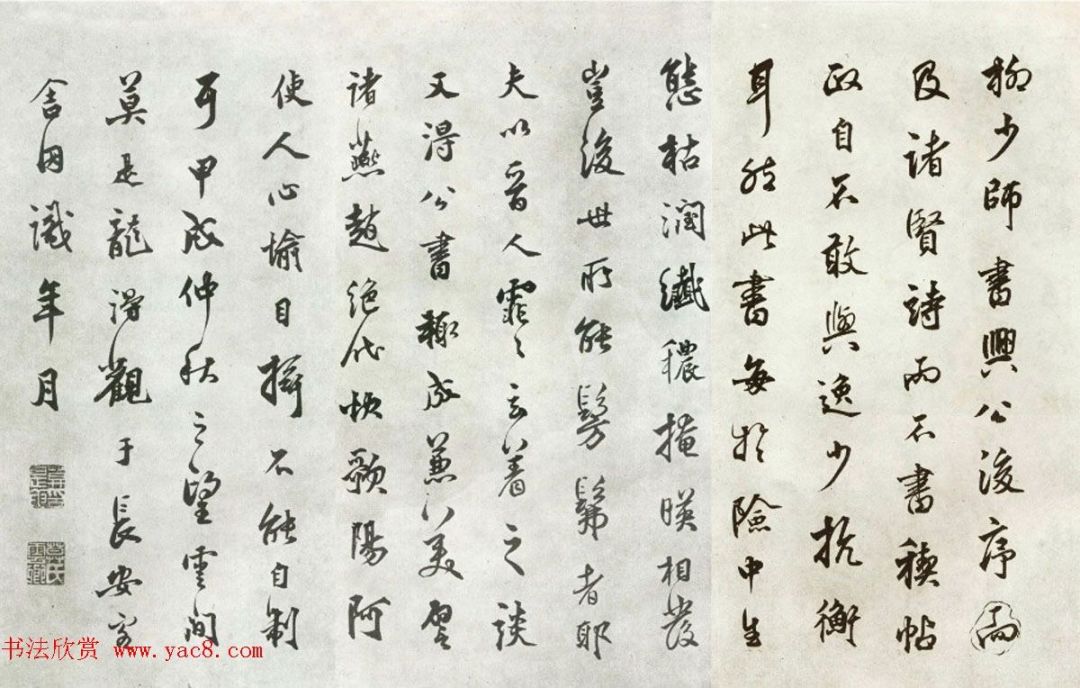 柳少師書興公後序而
及諸賢詩而不書稧帖
政自不敢與逸少抗衡
耳然此書每於險中生
態枯潤纖穠掩暎相發
豈後世所能髣髴者耶
夫以晉人霏〻玄著之談
又得公書趣成兼美譬
諸燕趙絕代狀歌陽阿
使人心愉目擕不能自制
耳甲戌仲秋之望雲間
莫是龍得觀于長安客
舍因識年月
书法欣赏 www.yac8.com